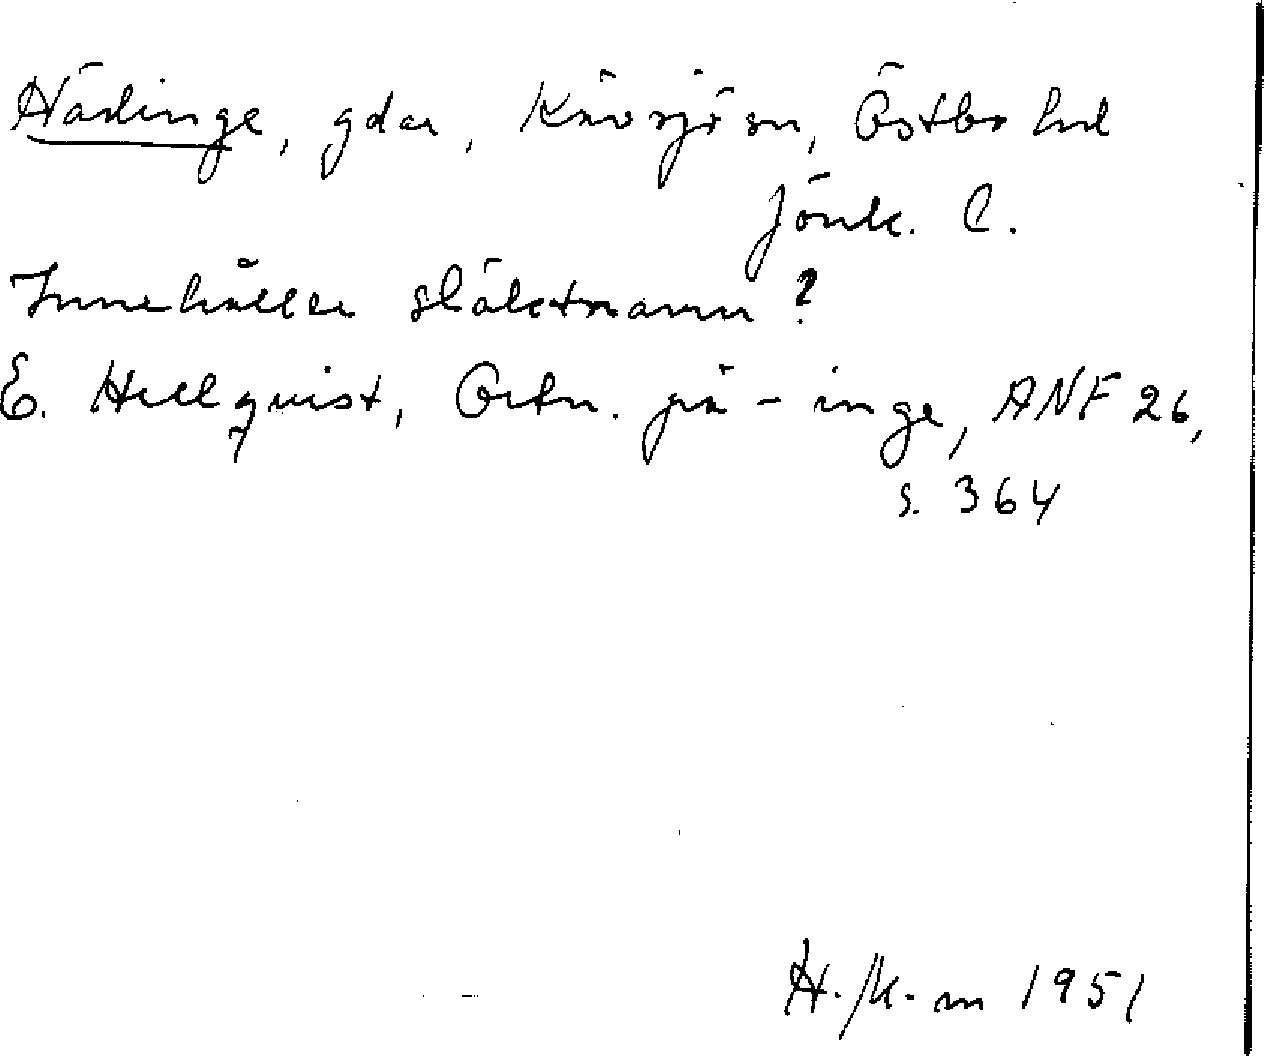 Nädinge, gdar, Kävsjö sn, Östbo hd
Jönk. l.
Innehåller släktnamn?
E. Hellquist, Ortn. på -inge, ANF 26,
s. 364
H. m 1951